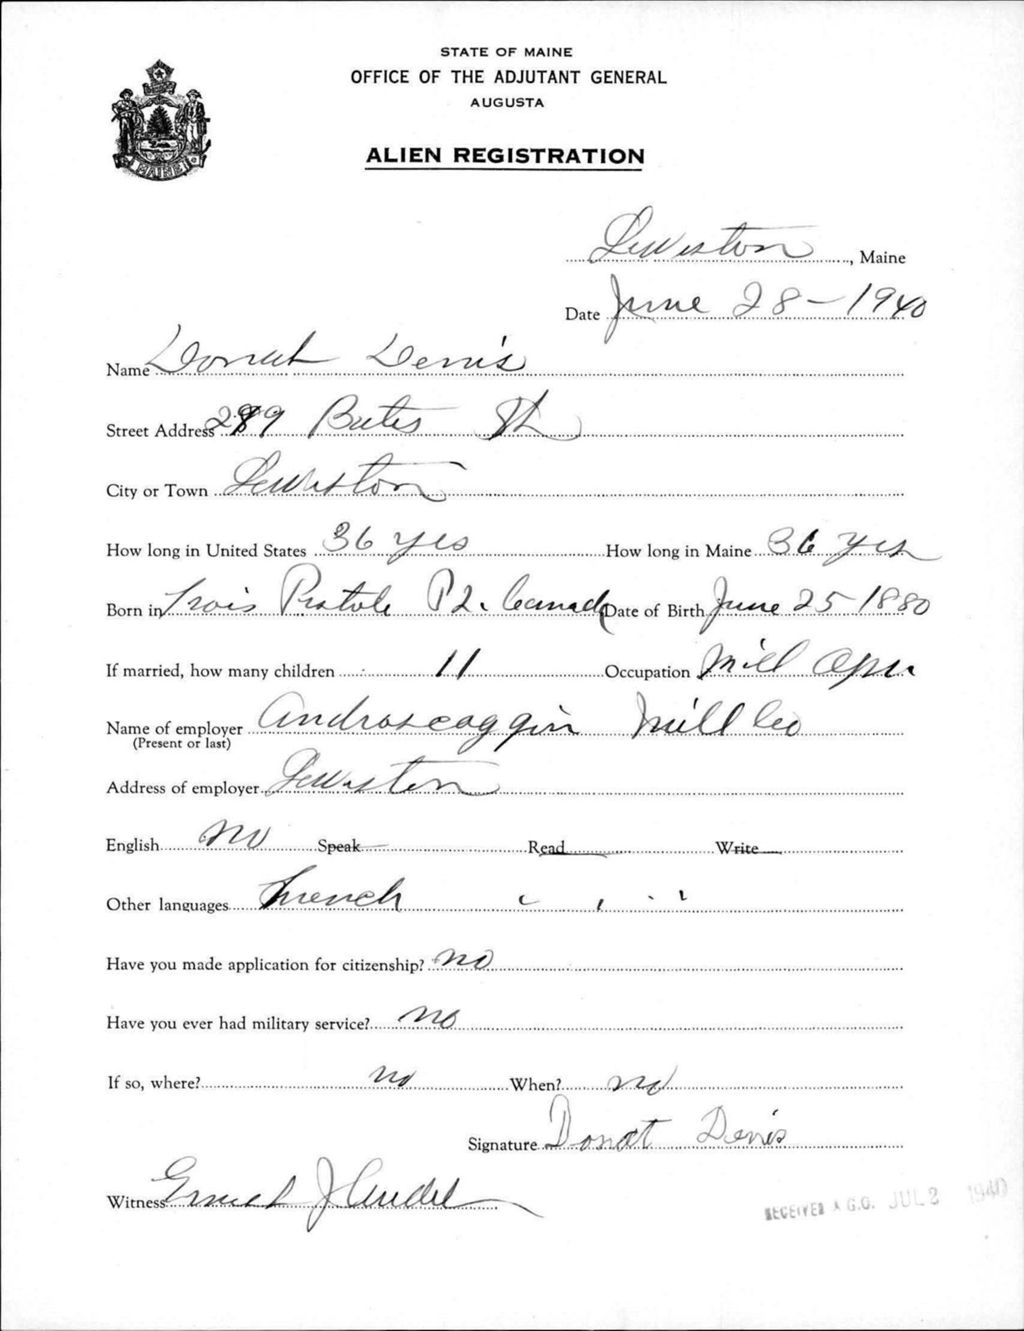 STATE OF MAINE
OFFICE OF THE ADJUTANT GENERAL
AUGUSTA
MAINE
ALIEN REGISTRATION
Lewiston, Maine
Date June 28-1940
Name Donat Denis
Street Address 289 Bates St
City or Town Lewiston
How long in United States 36 yrs How long in Maine 36 yrs
Born in Trois Pistole P2. Canada Date of Birth June 25 1880
If married, how many children 11 Occupation Mill Oper
Name of employer Androscoggin Mill Co
(Present or last)
Address of employer Lewiston
English no Speak Read Write
Other languages French
Have you made application for citizenship? no
Have you ever had military service? no
If so, where? no When? no
Signature Donat Denis
Witness Ernest J
RECEIVED A.G.O. JUL 2 1940